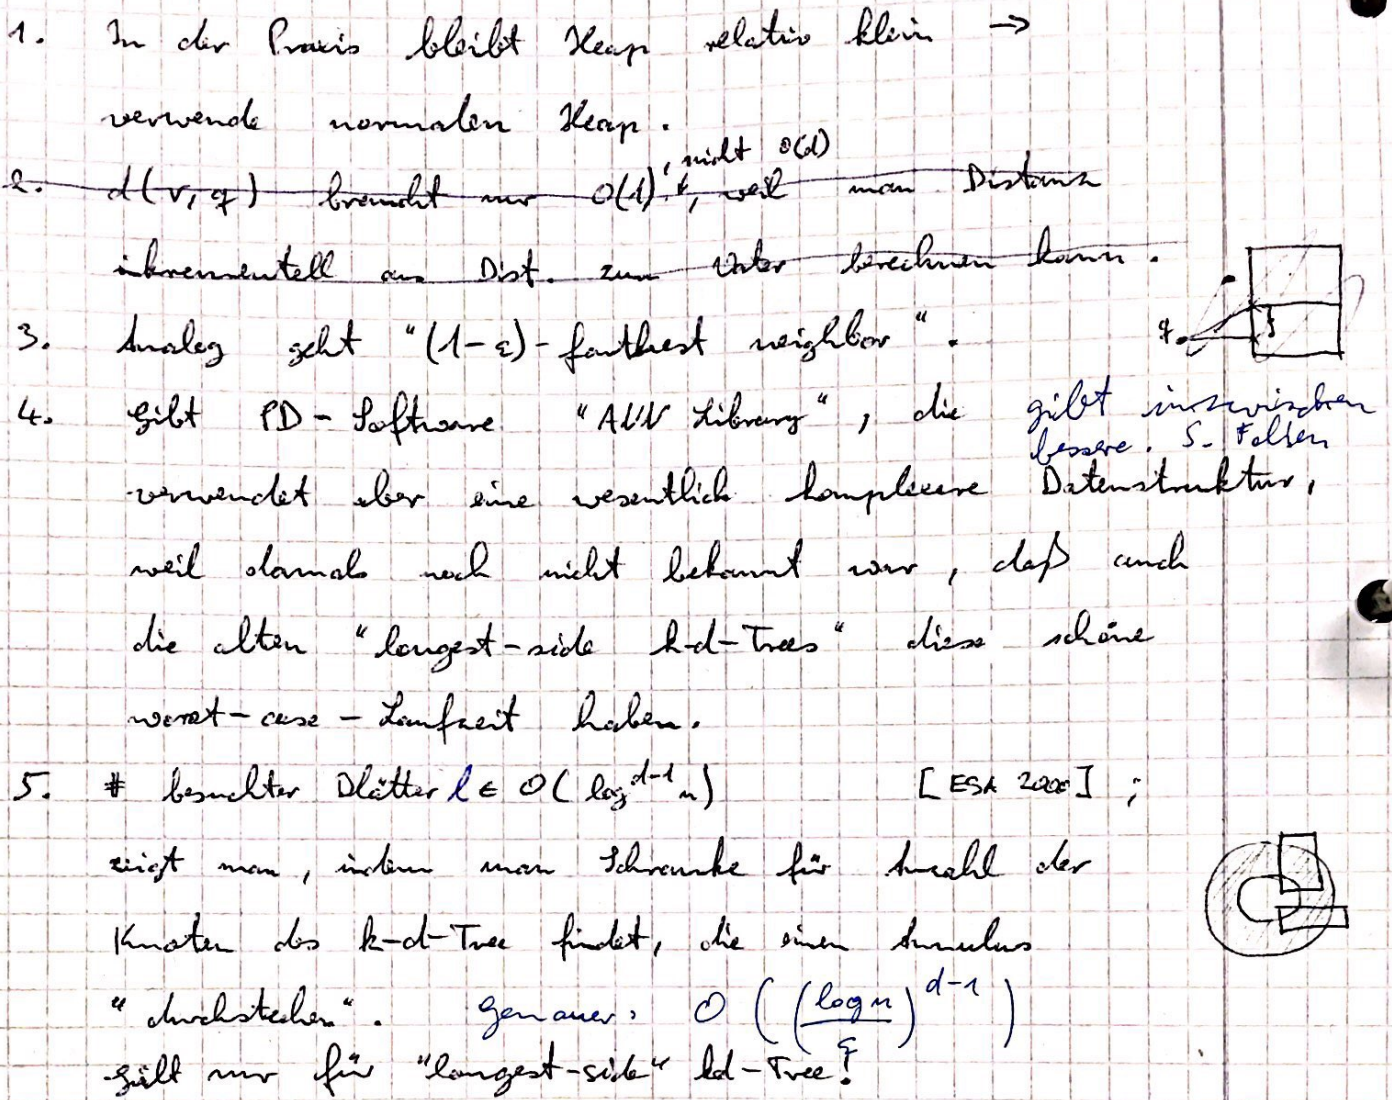 1. In der Praxis bleibt Heap relativ klein →
verwende normalen Heap.
, nicht O(d)
2. d(v,q) braucht nur O(1), weil man Distanz
inkrementell aus Dist. zum Vater berechnen kann.
3. Analog geht "(1-ε)-farthest neighbor".
q
4. Gibt PD-Software "ANN Library", die
gibt inzwischen
bessere. S. Folien
verwendet aber eine wesentlich komplexere Datenstruktur,
weil damals noch nicht bekannt war, daß auch
die alten "longest-side k-d-Trees" diese schöne
worst-case-Laufzeit haben.
5. # besuchter Blätter l ∈ O(log^{d-1} n) [ESA 2000];
zeigt man, indem man Schranke für Anzahl der
Knoten des k-d-Tree findet, die einen Annulus
"durchstechen". Genauer: O((log n / ε)^{d-1})
Gilt nur für "longest-side" kd-Tree!